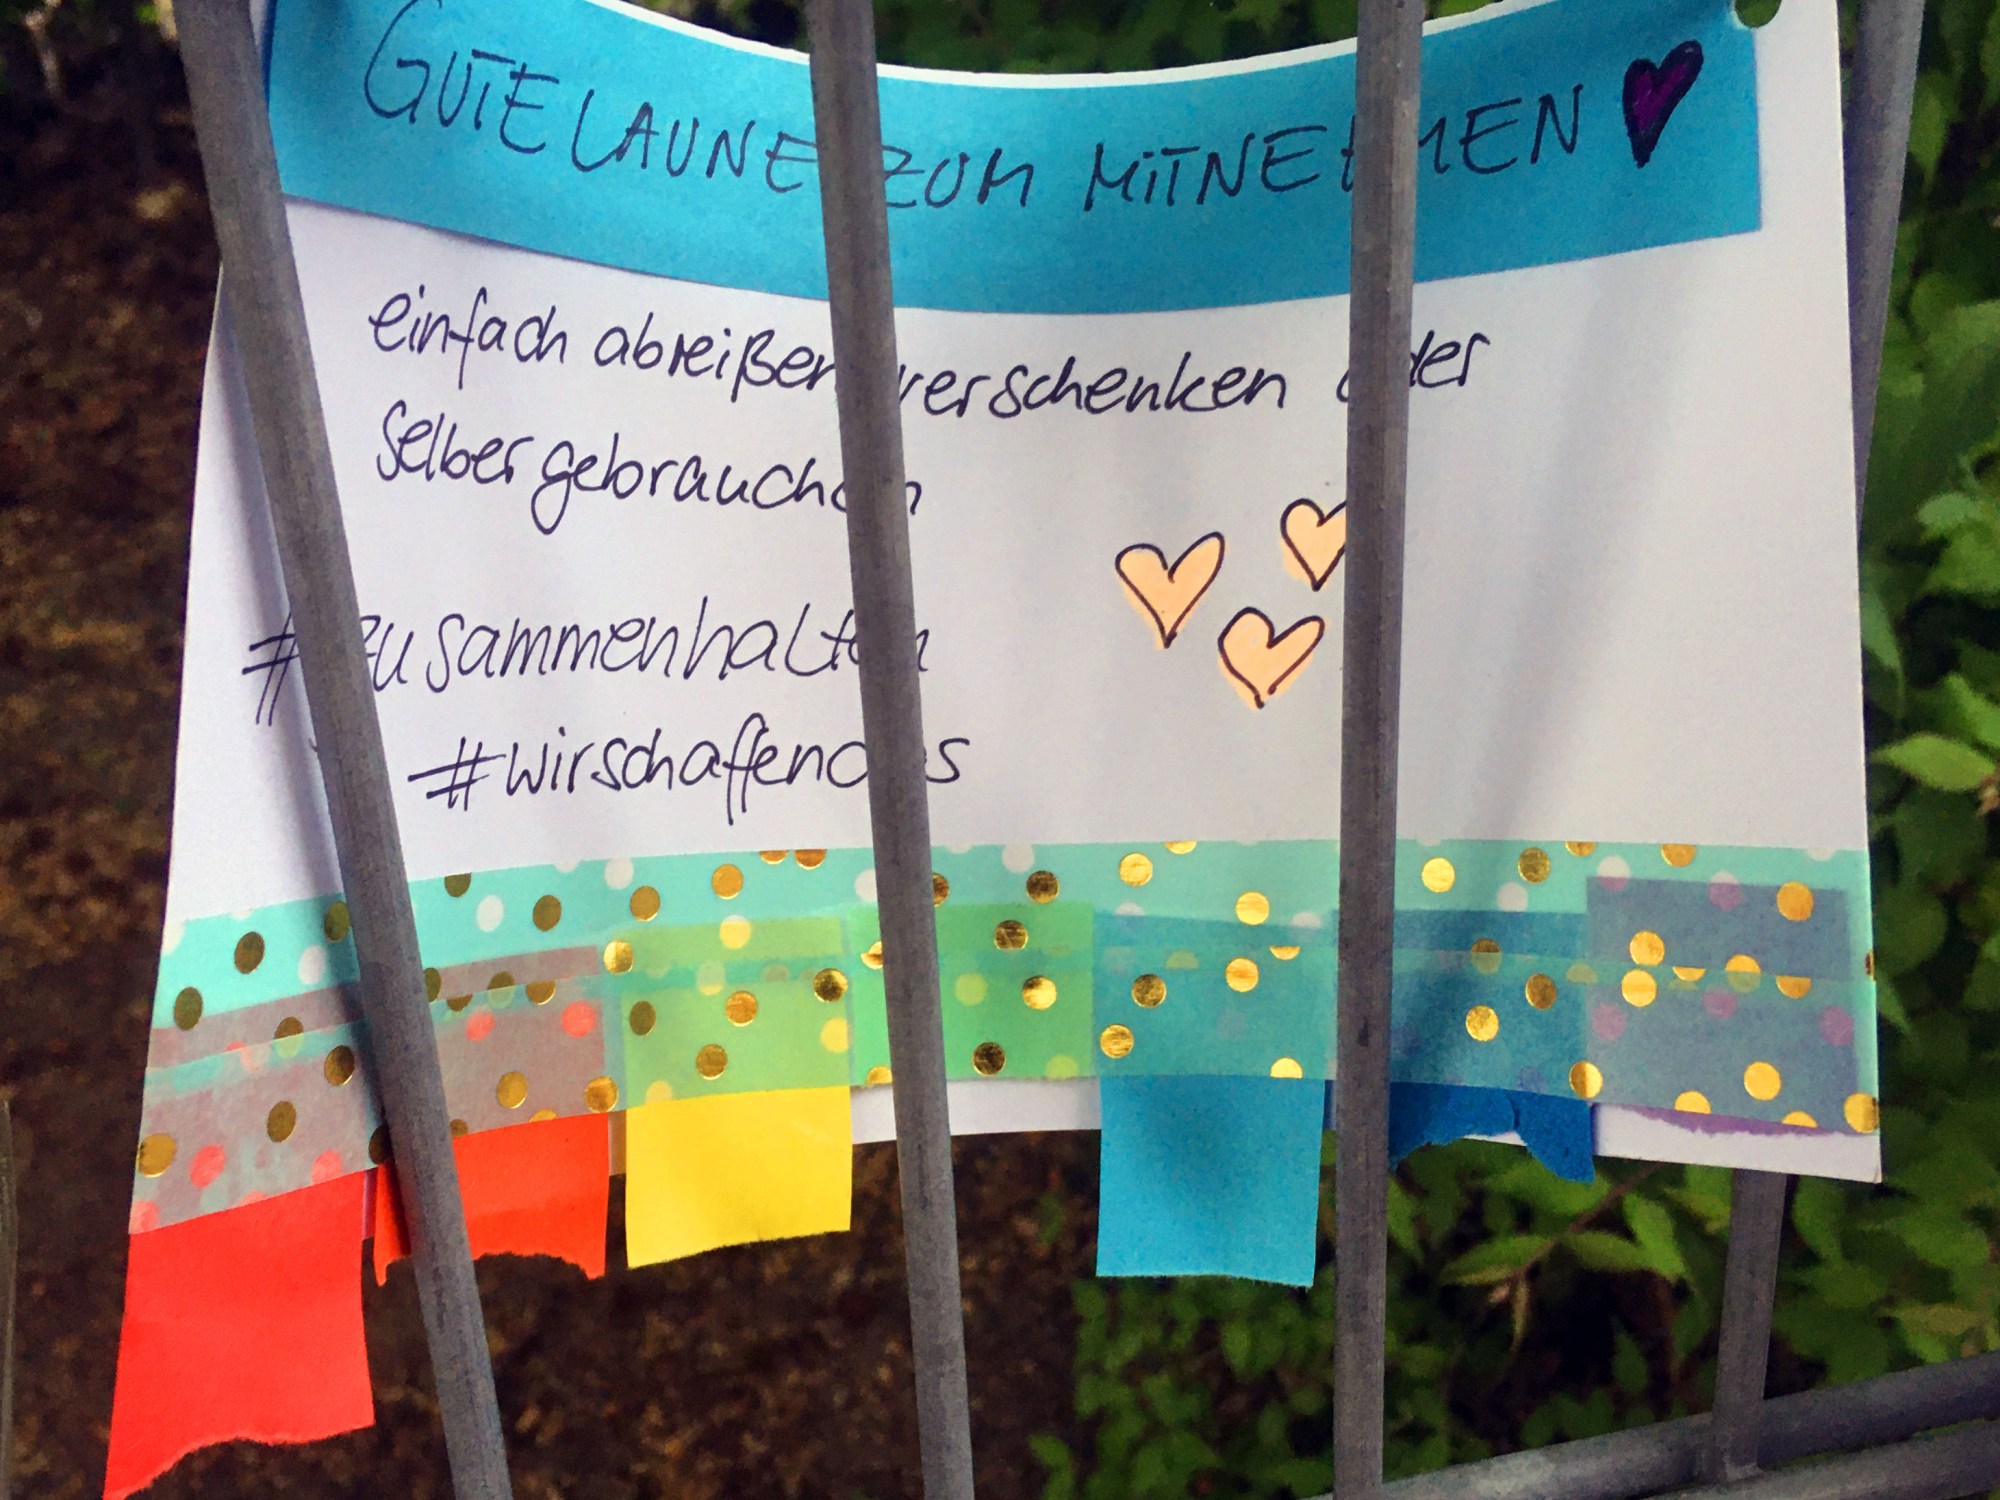 GUTE LAUNE ZUM MITNEHMEN
einfach abreißen, verschenken oder
selber gebrauchen
#zusammenhalten
#wirschaffendas